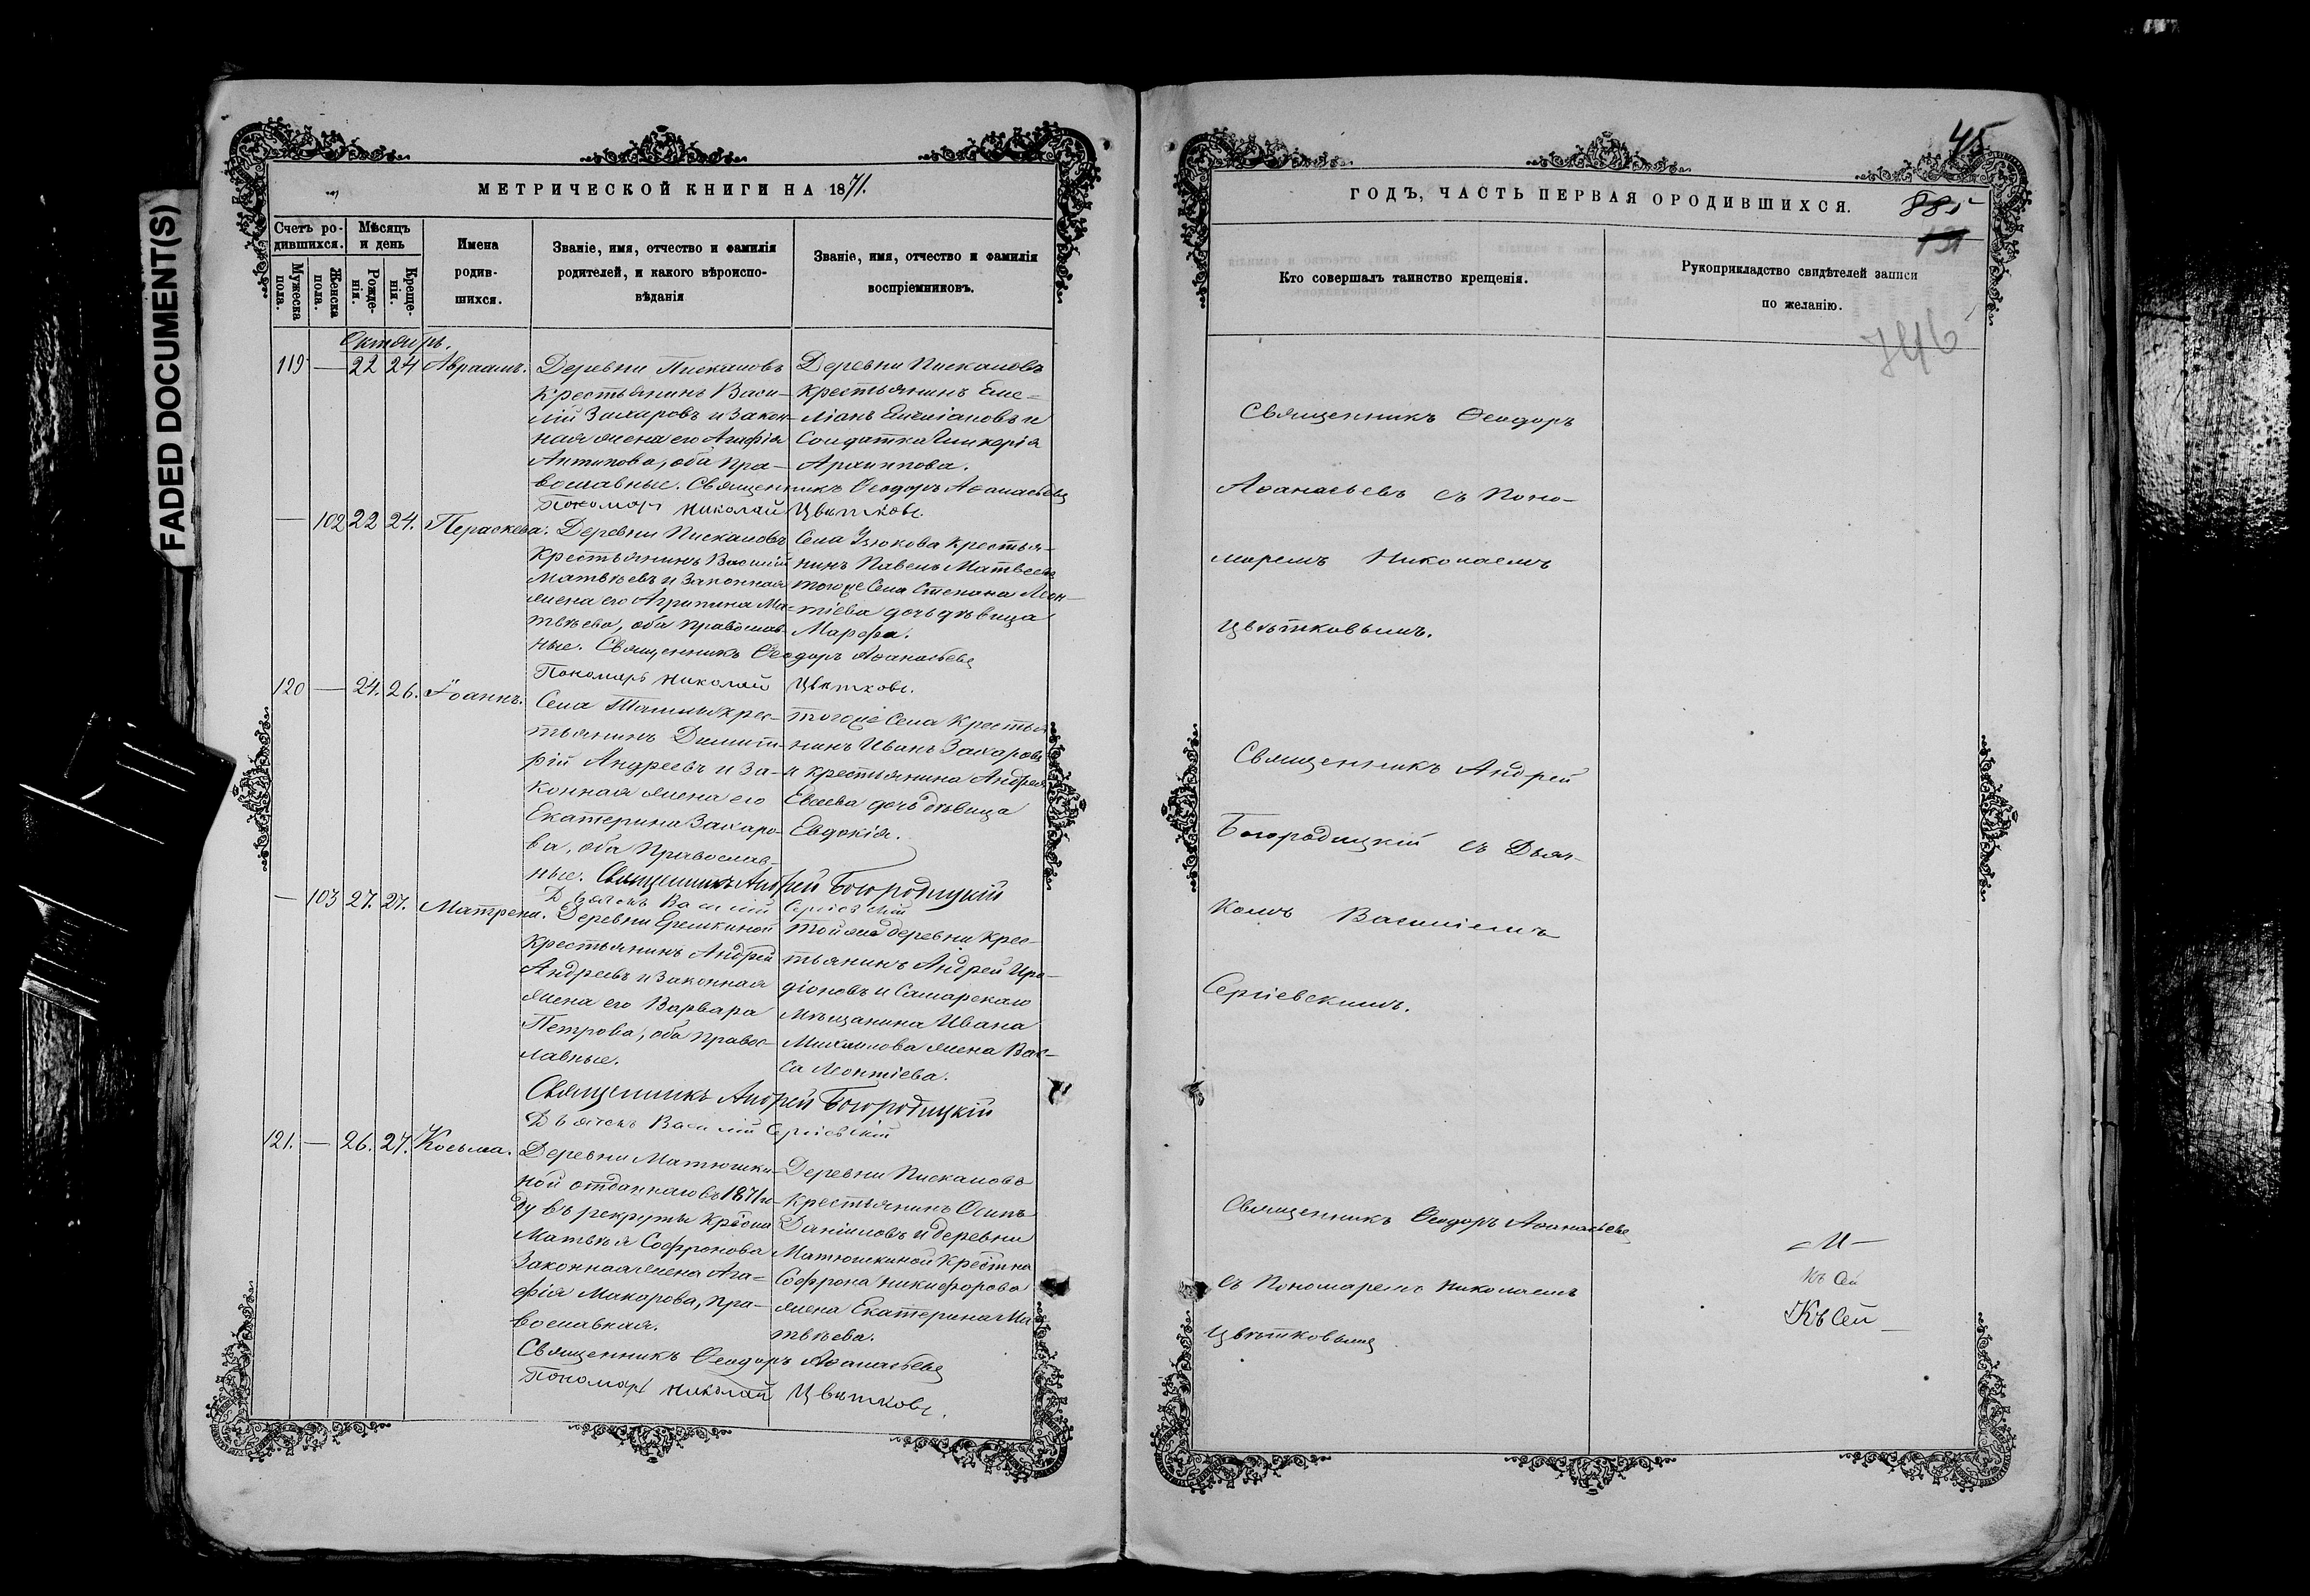 FADED DOCUMENT(S)
МЕТРИЧЕСКОЙ КНИГИ НА 1871.
Счетъ родившихся.
Мужеска пола.
Женска пола.
Мѣсяцъ и день
Рожденія.
Крещенія.
Имена родившихся.
Званіе, имя, отчество и фамилія родителей, и какого вѣроисповѣданія
Званіе, имя, отчество и фамилія воспріемниковъ.
Октябрь.
119 — 22 24 Авраамъ.
Деревни Пискаловъ
Крестьянинъ Васи-
лій Захаровъ и Закон-
ная жена его Агафія
Антипова, оба пра-
вославные. Священникъ Ѳеодоръ Аѳанасьевъ
Пономарь Николай Цвѣтковъ.
Деревни Пискаловъ
крестьянинъ Еме-
ліанъ Емеліановъ и
Солдатка Гликерія
Архиппова.
— 102 22 24. Параскева.
Деревни Пискаловъ
Крестьянинъ Василій
Матвѣевъ и Законная
жена его Агрипина Ма-
твѣева, оба православ-
ные. Священникъ Ѳеодоръ Аѳанасьевъ
Пономарь Николай Цвѣтковъ.
Села Узюкова Крестья-
нинъ Павелъ Матвеевъ
тогоже Села Степана Леон-
тіева дочь дѣвица
Марфа.
120 — 24. 26. Іоаннъ.
Села Ташлы крес-
тьянинъ Димит-
рій Андреевъ и За-
конная жена его
Екатерина Захаро-
ва, оба Православ-
ные. Священникъ Андрей Богородицкій
Дьячекъ Василій Сергіевскій
тогоже Села Крестья
нинъ Иванъ Захаровъ
и крестьянина Андрея
Евсева дочь дѣвица
Евдокія.
— 103 27. 27. Матрена.
Деревни Еремкиной
Крестьянинъ Андрей
Андреевъ и Законная
жена его Варвара
Петрова, оба правос-
лавные.
Священникъ Андрей Богородицкій
Дьячекъ Василій Сергіевскій
Той же деревни Крес-
тьянинъ Андрей Иро-
діоновъ и Самарскаго
Мѣщанина Ивана
Михаилова жена Вас-
са Леонтіева.
121. — 26. 27. Косьма.
Деревни Матюшки-
ной отданнаго въ 1871 го-
ду въ рекруты Крѣстна
Матвѣя Софронова
Законная жена Ага-
фія Макарова, пра-
вославная.
Священникъ Ѳеодоръ Аѳанасьевъ
Пономарь Николай Цвѣтковъ.
Деревни Пискаловъ
крестьянинъ Осипъ
Даниловъ и деревни
Матюшкиной Крестна
Софрона Никифорова
жена Екатерина Ма
твѣева.
45
ГОДЪ, ЧАСТЬ ПЕРВАЯ О РОДИВШИХСЯ.
885
131
Кто совершалъ таинство крещенія.
Рукоприкладство свидѣтелей записи по желанію.
746
Священникъ Ѳеодоръ
Аѳанасьевъ съ Поно-
маремъ Николаемъ
Цвѣтковымъ.
Священникъ Андрей
Богородицкій съ Дьяч-
комъ Василіемъ
Сергіевскимъ.
Священникъ Ѳеодоръ Аѳанасьевъ
съ Пономаремъ Николаемъ
Цвѣтковымъ
Къ Сей
Къ Сей